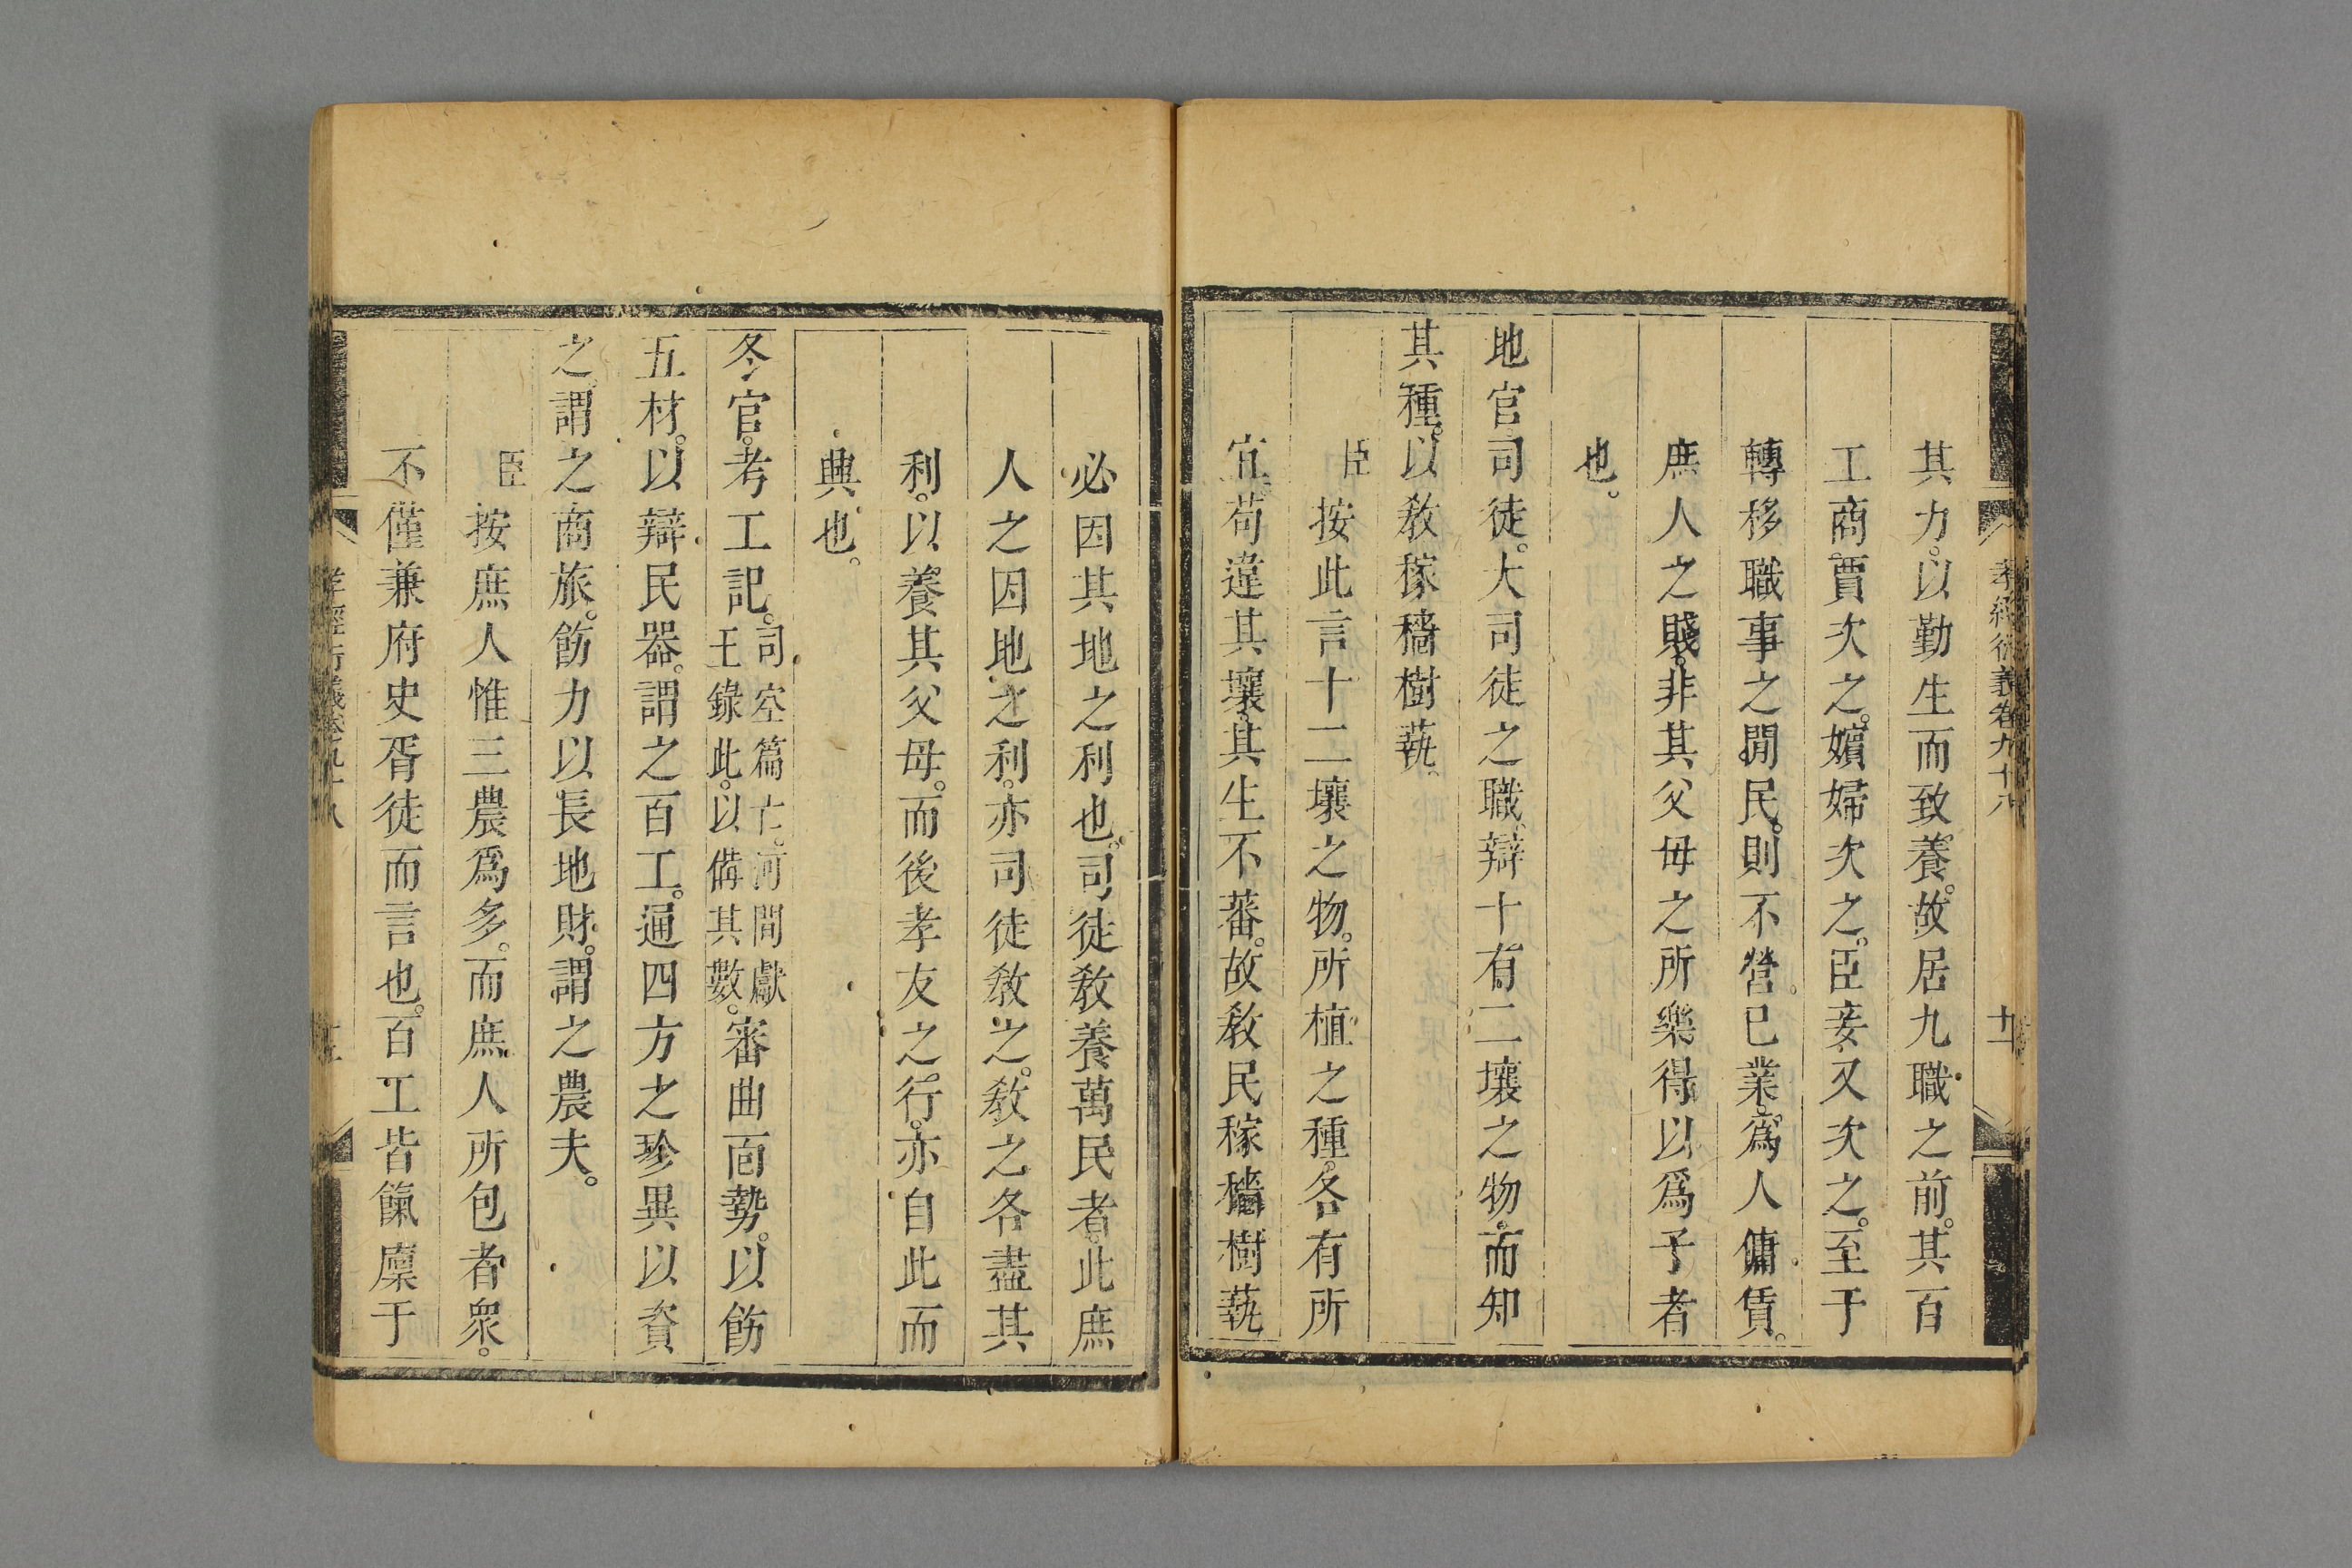 孝經衍義卷九十八
十二
其力。以勤生而致養。故居九職之前。其百
工商。賈次之。嬪婦次之。臣妾又次之。至于
轉移職事之閒民。則不營已業。爲人傭賃。
庶人之賤。非其父母之所樂得以爲子者
也。
地官司徒。大司徒之職。辯十有二壤之物。而知
其種。以敎稼穡樹蓺。
臣按此言十二壤之物。所植之種。各有所
宜。苟違其壤。其生不蕃。故敎民稼穡樹蓺
必因其地之利也。司徒敎養萬民者。此庶
人之因地之利。亦司徒敎之。敎之各盡其
利。以養其父母。而後孝友之行。亦自此而
興也。
冬官。考工記。司空篇亡。河間獻王錄此。以備其數。審曲面勢。以飭
五材。以辯民器。謂之百工。通四方之珍異以資
之。謂之商旅。飭力以長地財。謂之農夫。
臣按庶人惟三農爲多。而庶人所包者衆。
不僅兼府史胥徒而言也。百工皆餼廩于
孝經衍義卷九十八